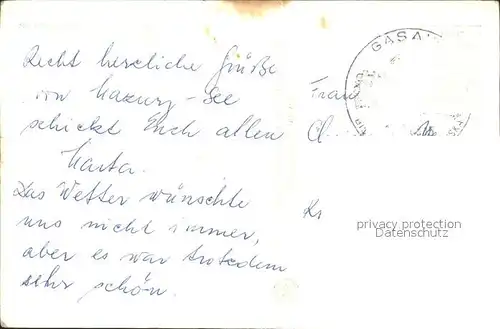 Recht herzliche Grüße
von Mazury-See
schickt Euch allen
Marta.
Das Wetter wünschte
uns nicht immer,
aber es war trotzdem
sehr schön.
GASA
Frau
Cl
Kr
privacy protection
Datenschutz